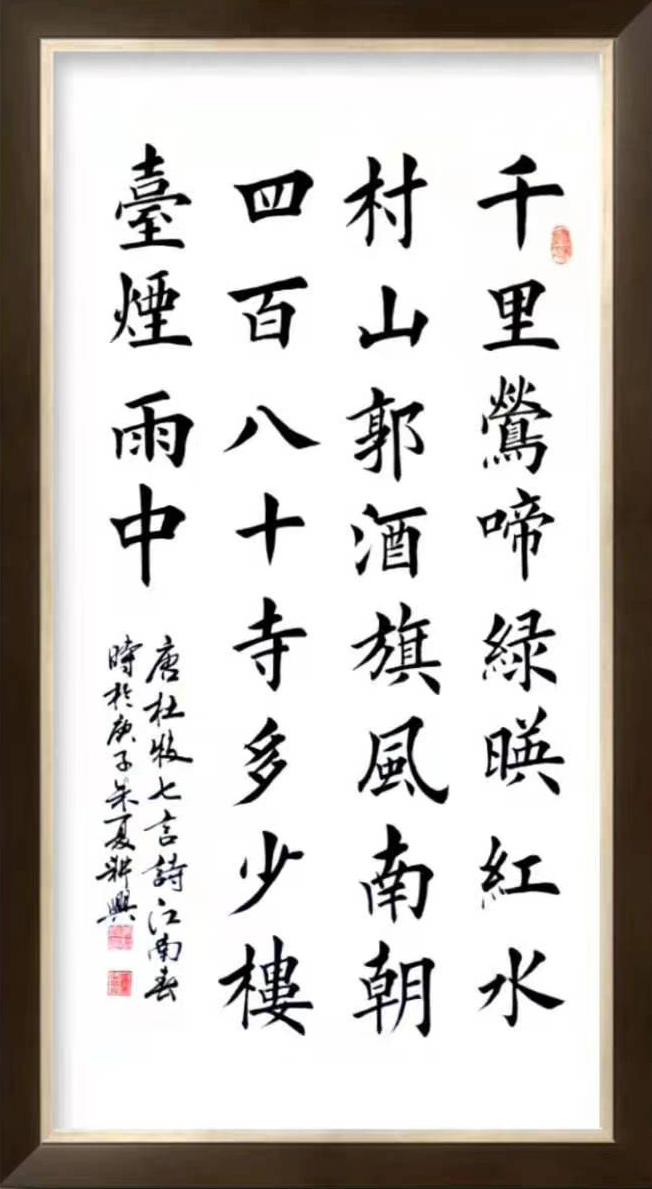 千里鶯啼綠暎紅水
村山郭酒旗風南朝
四百八十寺多少樓
臺煙雨中
唐杜牧七言詩江南春
時於庚子年夏
興